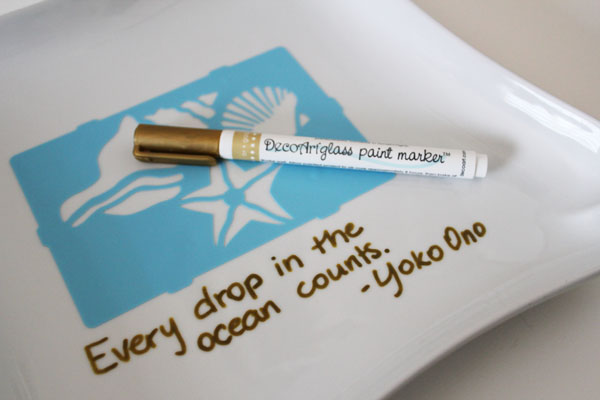 DecoArt glass paint marker™
Every drop in the
ocean counts.
-Yoko Ono